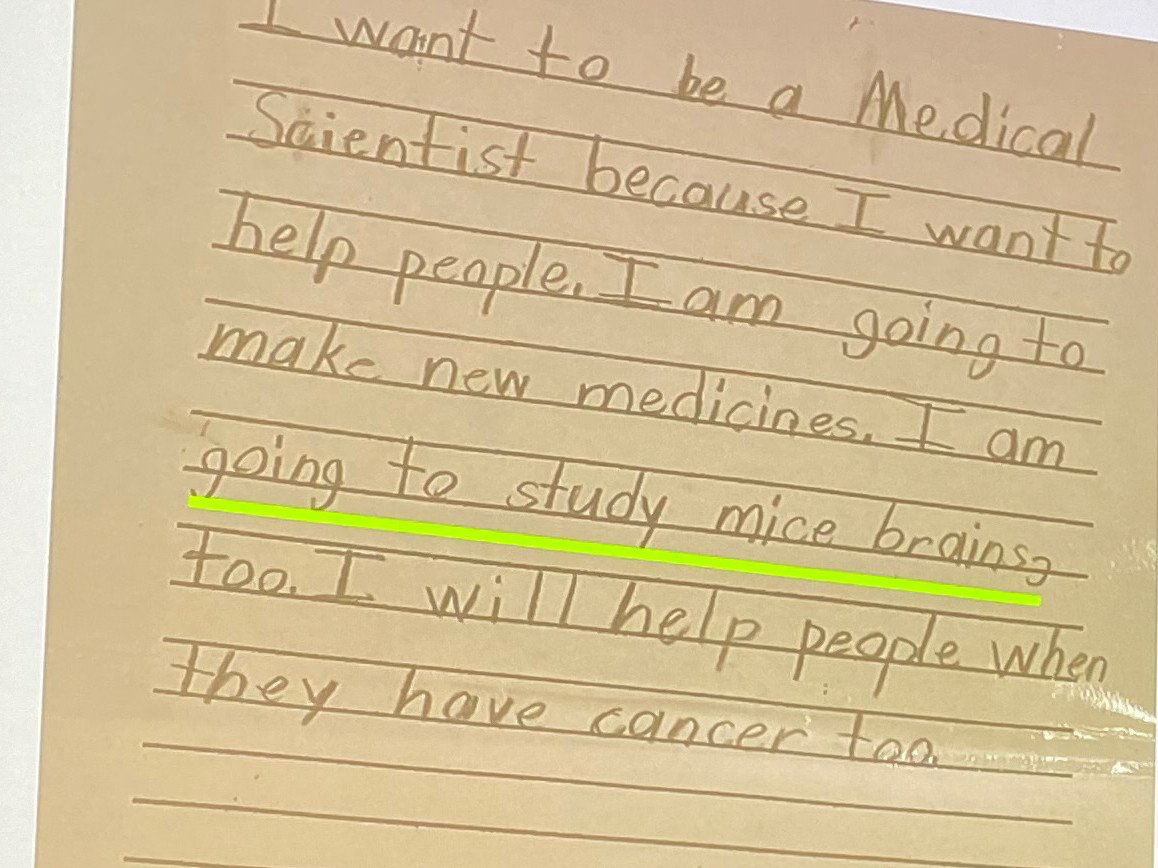 I want to be a Medical
Scientist because I want to
help people. I am going to
make new medicines. I am
going to study mice brains,
too. I will help people when
they have cancer too.